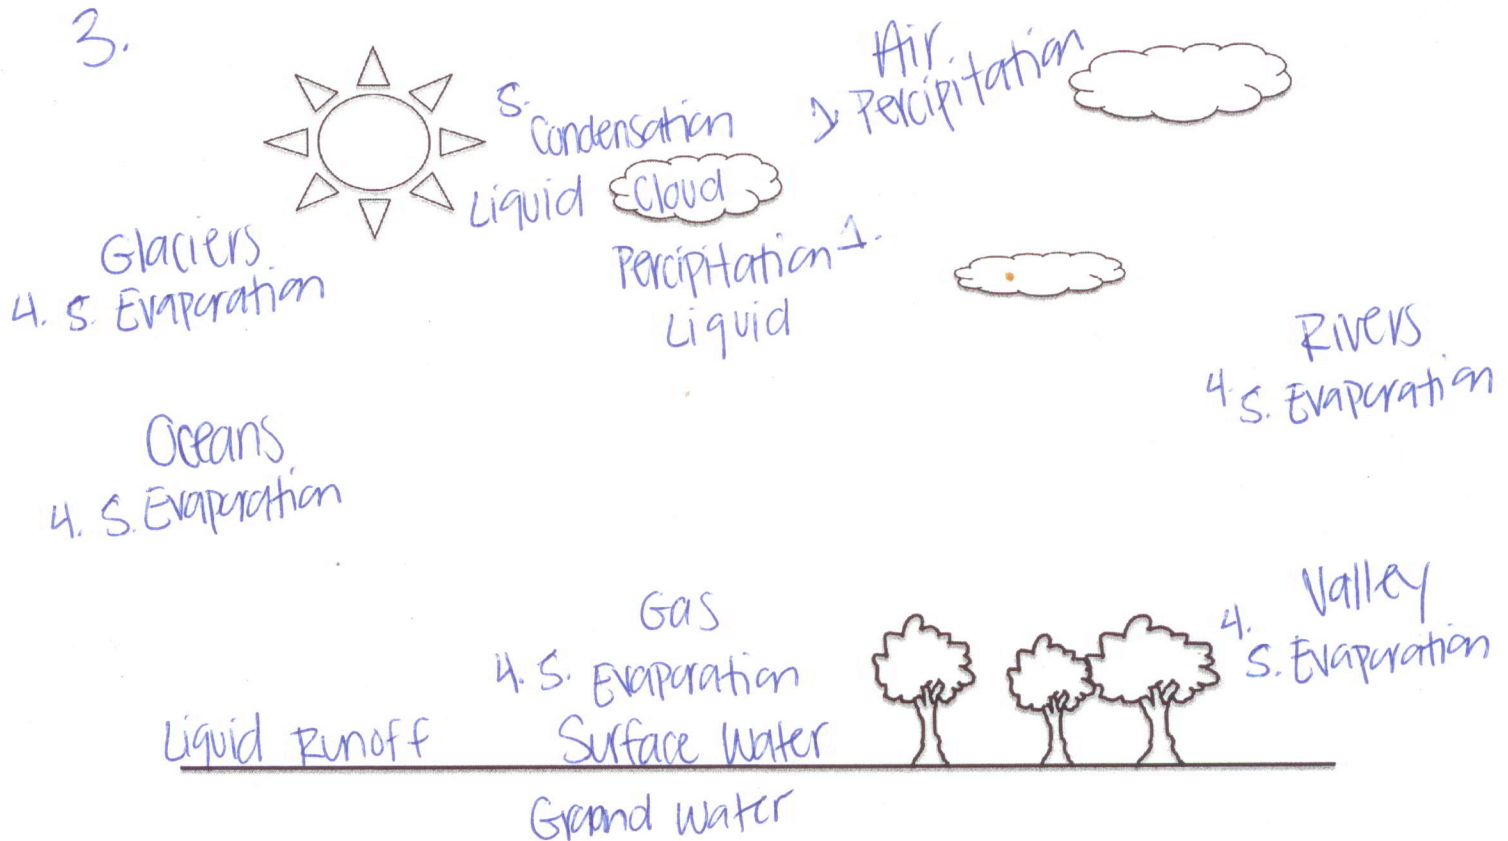 3.
Air
1. Percipitation
5.
Condensation
Liquid Cloud
Percipitation 1.
Liquid
Glaciers
4. 5. Evaporation
Rivers
4. 5. Evaporation
Oceans
4. 5. Evaporation
Valley
4. 5. Evaporation
Gas
4. 5. Evaporation
Liquid Runoff
Surface Water
Ground Water